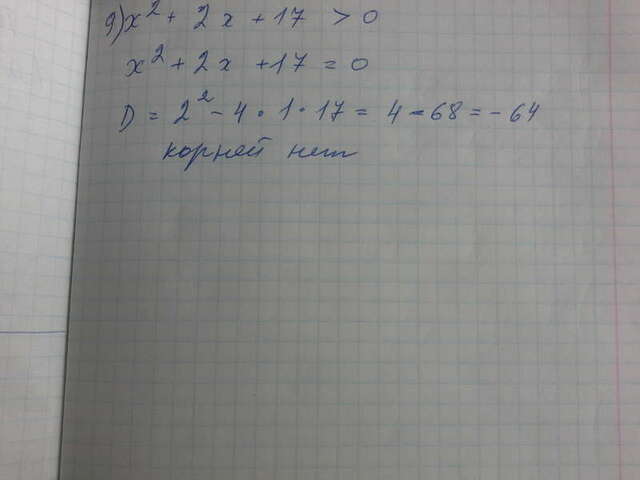 9) x² + 2x + 17 > 0
x² + 2x + 17 = 0
D = 2² - 4 · 1 · 17 = 4 - 68 = - 64
корней нет